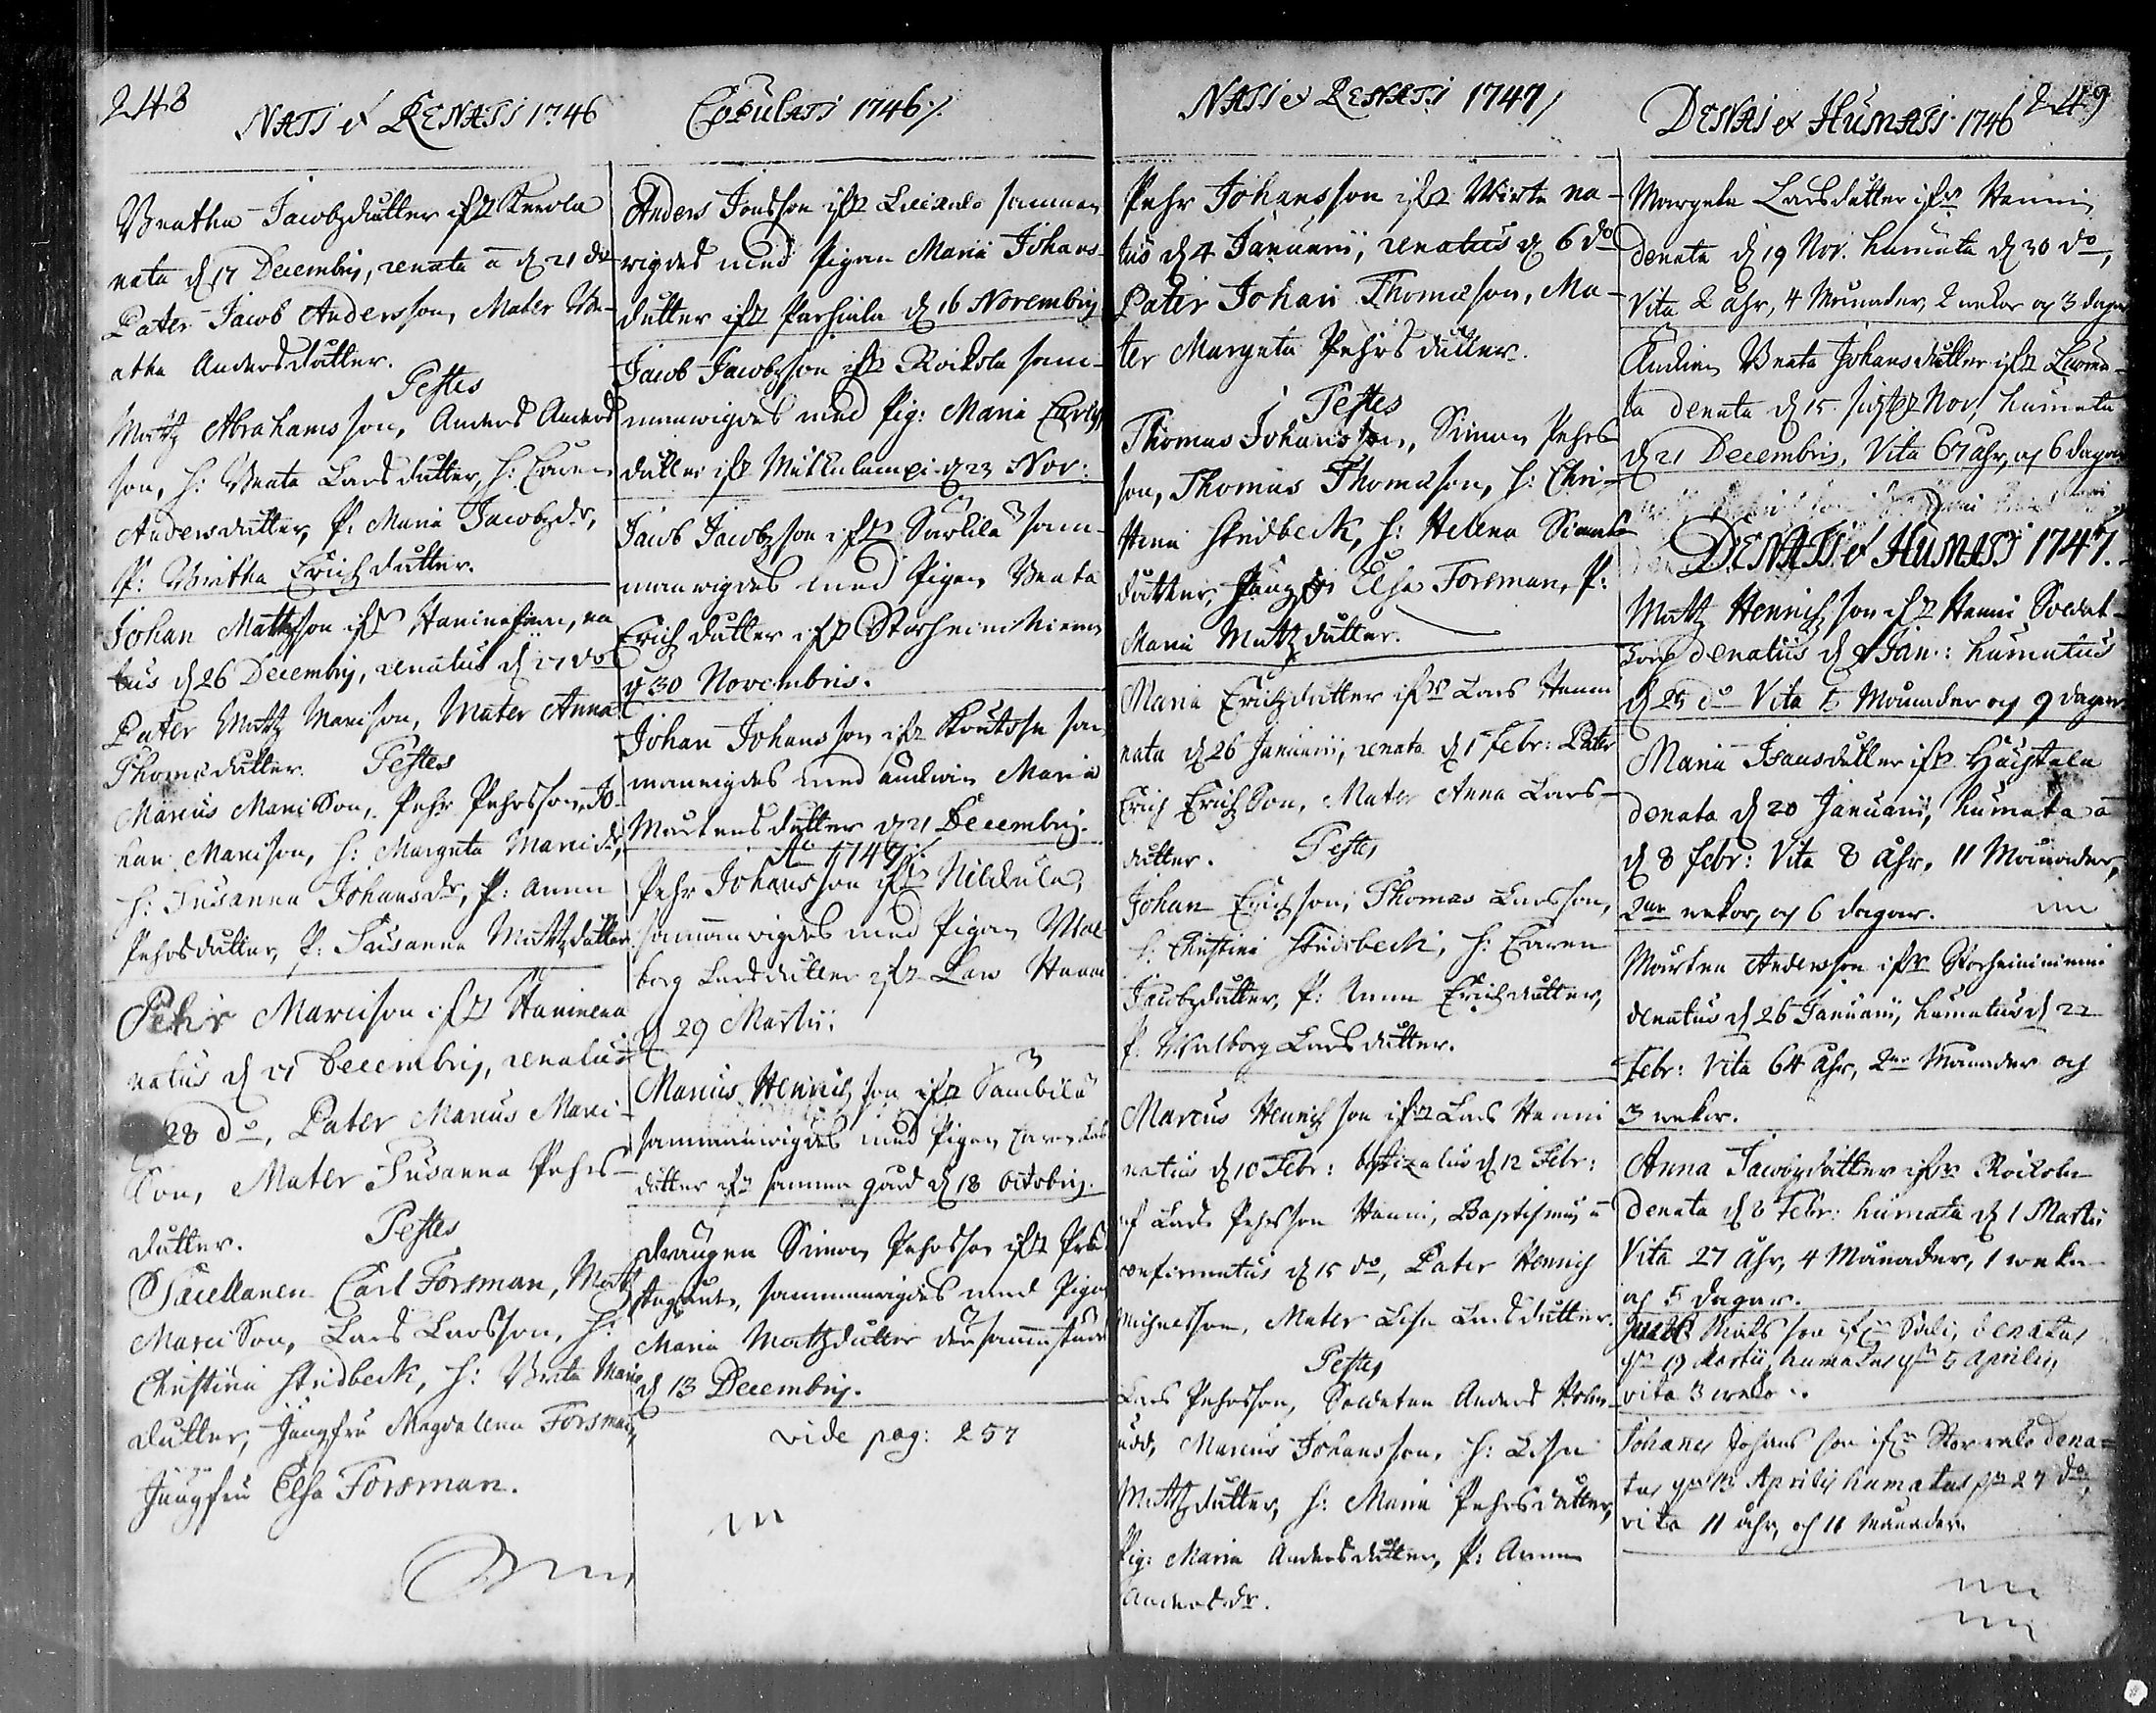 248
NATI et RENATI 1746
Breatha Jacobzdutter ifr Kerola
nata d 17 Decembris, renata d 21 do
Pater Jacob Andersson, Mater Bre-
atha Andersdutter.
Testes
Mattz Abrahamsson, Anders Anders
son, h: Breata Larsdutter, h: Caren
Andersdutter, P: Maria Jacobzdr,
P: Britha Erichdutter.
Johan Mattzson ifr na
tus d 26 Decembrij, renatus d 27 do
Pater Mattz Marcison, Mater Anna
Thomædutter. Testes
Marcus Marcisson, Pehr Pehrsson, Jo-
han Marcison, h: Margeta Marcidr,
h: Susanna Johansdr, P: Anna
Pehrsdutter, P: Susanna Mattzdutter.
Pehr Marcison ifr Haninena
natus d Decembrij, renatus
28 do, Pater Marcus Marci-
son, Mater Susanna Pehrs-
dutter. Testes
Sacellanen Carl Forsman, Mattz
Marcison, Lars Larsson, h:
Christina Stridbeck, h: Breta Marci
dutter, Jungfru Magdalena Forsman,
Jungfru Elsa Forsman.
Copulati 1746
Anders Jonsson ifr samman
wigdes med Pigan Maria Johans-
dutter ifr Parhiala d 16 Novembrij
Jacob Jacobzson ifr Roikola sam-
manwigdes med Pig: Maria Carls
dutter ifr Mutkulampi d 23 Nov:
Jacob Jacobzson ifr Sarkila sam-
manwigdes med Pigan Breata
Erichdutter ifr Storheininiemi
d 30 Novembris.
Johan Johansson ifr sam
manwigdes med änckian Maria
Mårtensdutter d 21 Decembrij.
Ao 1747
Pehr Johansson ifr Nikkula,
sammanwigdes med Pigan Wal
borg Larsdutter ifr Lars Hanni
d 29 Martii.
Marcus Henrichson ifr Sambila
sammanwigdes med Pigan Caren Lars
dutter ifr samma gård d 18 Octobrij.
Drängen Simon Pehrsson ifr Prä
stegården, sammanwigdes med Pigan
Maria Mattzdutter dersammastädes
d 13 Decembrij.
vide pag: 257
NATI et RENATI 1747
Pehr Johansson ifr Wirta na-
tus d 4 Januarii, renatus d 6 do
Pater Johan Thomæson, Ma-
ter Margeta Pehrsdutter.
Testes
Thomas Johansson, Simon Pehrs
son, Thomas Thomæson, h: Chri-
stina Stridbeck, h: Helena Simons
dutter, Jungfr: Elsa Forsman, P:
Maria Mattzdutter.
Maria Erichdutter ifr Lars Hanni
nata d 26 Januarii, renata d 1 Febr: Pater
Erich Erichson, Mater Anna Lars-
dutter. Testes
Johan Erichson, Thomas Larsson,
h: Christina Stridbeck, h: Caren
Jacobzdutter, P: Anna Erichdutter,
P: Walborg Larsdutter.
Marcus Henrichson ifr Lars Hanni
natus d 10 Febr: baptizatus d 12 Febr:
af Lars Pehrsson Hanni, Baptismus
confirmatus d 15 do, Pater Henrich
Michelsson, Mater Lisa Larsdutter.
Testes
Lars Pehrsson, Soldaten Anders Holm-
udd, Marcus Johansson, h: Lisa
Mattzdutter, h: Maria Pehrsdutter,
Pig: Maria Andersdutter, P: Anna
Andersdr.
249
DENATI et HUMATI 1746
Margeta Larsdutter ifr Hanni
denata d 19 Nov. humata d 30 do,
Vita 2 åhr, 4 Månader, 2 wekor och 3 dagar
Änckian Breata Johansdutter ifr
ta denata d 15 Nov, humata
d 21 Decembris, Vita 67 åhr, och 6 dagar
DENATI et HUMATI 1747.
Mattz Henrichson ifr Hanni Soldat-
torp denatus d Jan: humatus
d 25 do Vita 5 Månader och 9 dagar
Maria Isaacsdutter ifr
denata d 20 Januarii, humata
d 8 Febr: Vita 8 åhr, 11 Månader,
2ne wekor, och 6 dagar.
Mårten Andersson ifr Storheininiemi
denatus d 26 Januarii, humatus d 22
Febr: Vita 64 åhr, 2ne Månader och
3 wekor.
Anna Jacobzdutter ifr Roikola
denata d 8 Febr: humata d 1 Martii
Vita 27 åhr, 4 Månader, 1 weka
och 5 dagar.
son denatus
19 Martii humatus 5 Aprilis
vita 3 wekor
Johannes Johansson ifr dena-
tus 13 Aprilis humatus 27 do,
vita 11 åhr, och 11 Månader.